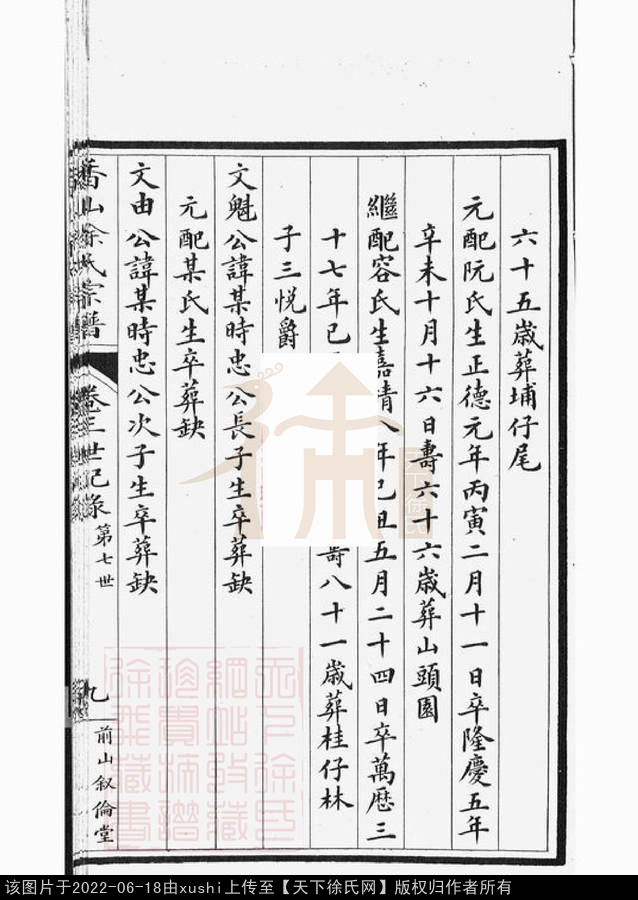 六十五歲葬埔仔尾
元配阮氏生正德元年丙寅二月十一日卒隆慶五年
辛未十月十六日壽六十六歲葬山頭園
繼配容氏生嘉靖八年己丑五月二十四日卒萬歷三
十七年己壽八十一歲葬桂仔林
子三悅爵
文魁公諱某時忠公長子生卒葬缺
元配某氏生卒葬缺
文由公諱某時忠公次子生卒葬缺
香山徐氏宗譜 卷三世紀录 第七世 九 前山叙倫堂
天下徐氏
该图片于2022-06-18由xushi上传至【天下徐氏网】版权归作者所有